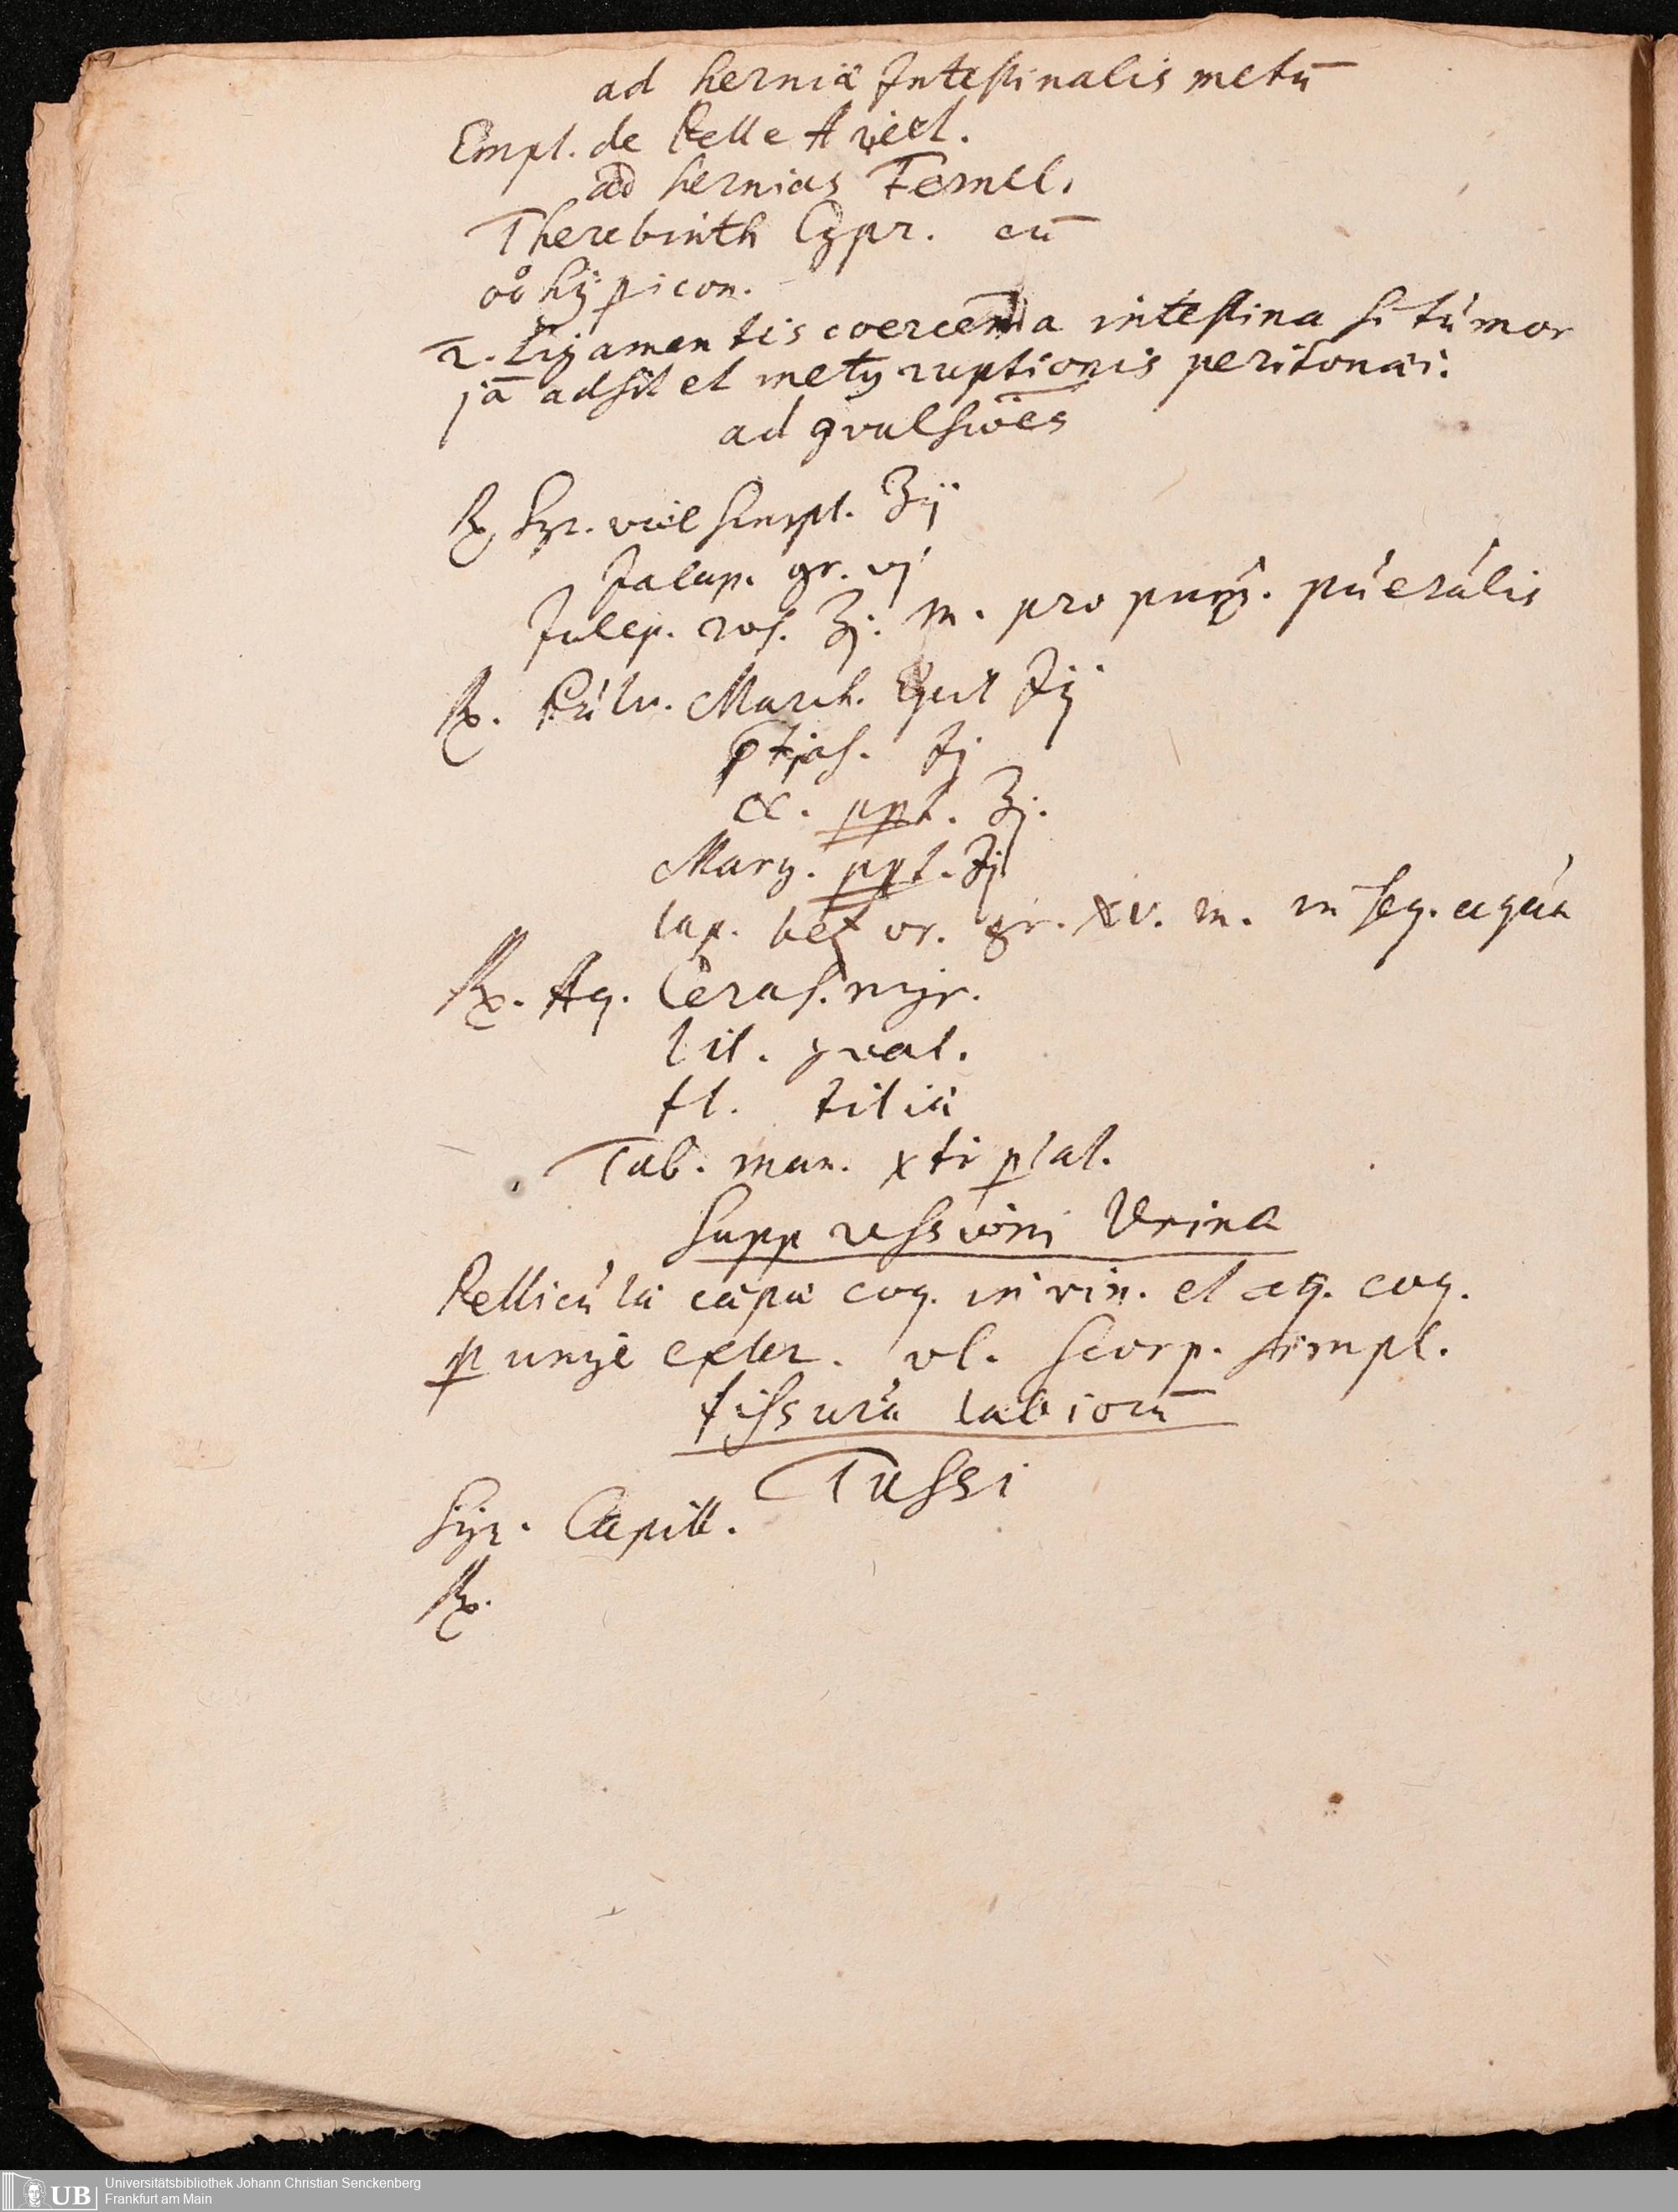 ad herniä Intestinalis metū
Empl. de Pelle Ariet.
ad hernias Fernel.
Therebinth Cypr. cū
hypicon.
2. Ligamentis coercenda intestina si túmor
jā adsit et metꝯ ruptionis peritonäi.
ad ꝯvulsiōes
℞ Syr. viol simpl. ʒij
Jalap. gr. vj
Julep. ros. ʒj. m. pro púerúlis
℞. Púlv. March. Epil ʒij
ʒj
CC. ppt. ʒj.
Marg. ppt. ʒj
lap. bezor. gr. xv. m. in seq. aqúä
℞. Aq. Ceras. nigr.
lil. ꝯval.
fl. tiliä
Tab. man. xti perlat.
Suppressiōni Vrinä
Pellicúlä cäpä coq. in vin. et aq. coq.
unge exter. ol. Scorp. simpl.
fissurä labiorū
Tussi
Syr. Capill.
℞.
Universitätsbibliothek Johann Christian Senckenberg
Frankfurt am Main
UB